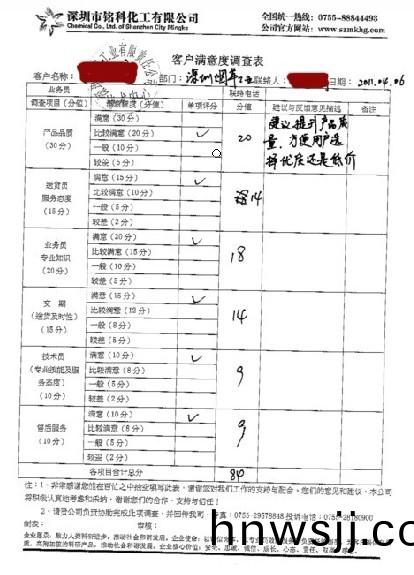 深圳市铭科化工有限公司
Chemical Co., Ltd. of Shenzhen City Mingke
全国统一热线：0755-88844493
公司官方网站：www.szmkhg.com
客户满意度调查表
客户名称： 部门：深圳烟草工业 联络人： 日期：2011.04.06
业务员 联络电话
调查项目（分值） 满意程度（分值） 单项评分 分值 建议与反馈意见描述 备注
产品品质
（30分）
满意（30分）
比较满意（20分） ✓
一般（10分）
较差（5分）
20
建议提升产品质
量，方便用户选
择优质还是低价
送货员
服务态度
（15分）
满意（15分） ✓
比较满意（10分）
一般（5分）
较差（2分）
14
业务员
专业知识
（20分）
满意（20分） ✓
比较满意（15分）
一般（10分）
较差（5分）
18
交期
（送货及时性）
（15分）
满意（15分） ✓
比较满意（12分）
一般（8分）
较差（5分）
14
技术员
（专业技能及服
务态度）
（10分）
满意（10分） ✓
比较满意（8分）
一般（5分）
较差（2分）
9
售后服务
（10分）
满意（10分） ✓
比较满意（8分）
一般（5分）
较差（2分）
9
各项目合计总分 84
注：1、非常感谢您能在百忙之中抽空填写此表，请留您对我们工作的支持与配合。您们的意见和建议，本公司
将积极认真地考虑和采纳。谢谢您们的合作、支持与信任！
2、请贵公司负责协助完成此项调查，并回传我司。
制表： 审核：
hnwsjj.com